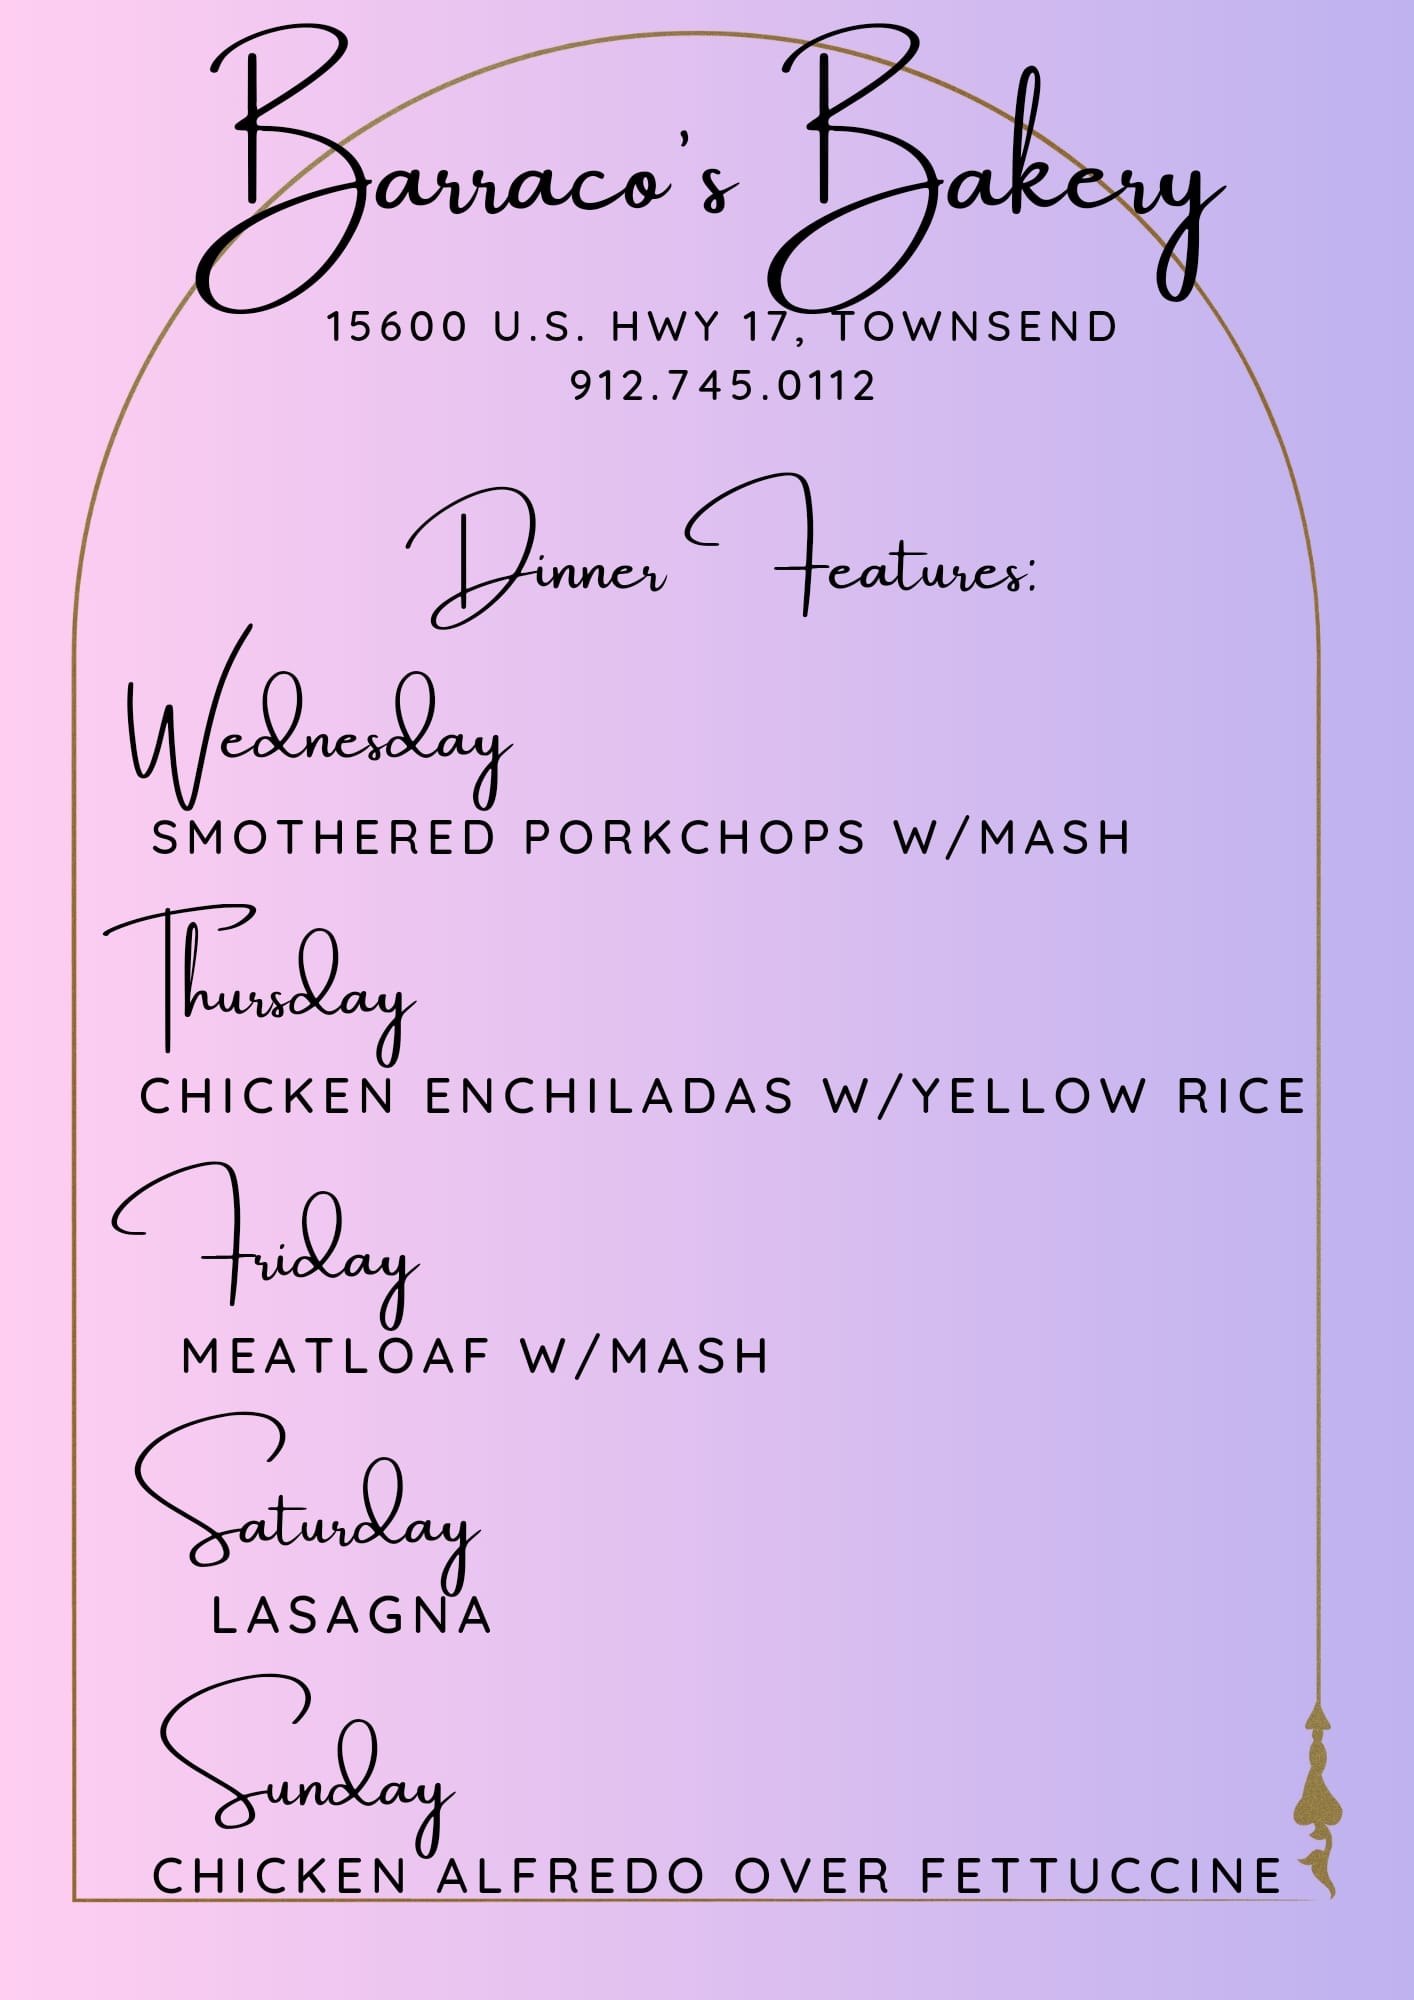 Barraco's Bakery
15600 U.S. HWY 17, TOWNSEND
912.745.0112
Dinner Features:
Wednesday
SMOTHERED PORKCHOPS W/MASH
Thursday
CHICKEN ENCHILADAS W/YELLOW RICE
Friday
MEATLOAF W/MASH
Saturday
LASAGNA
Sunday
CHICKEN ALFREDO OVER FETTUCCINE